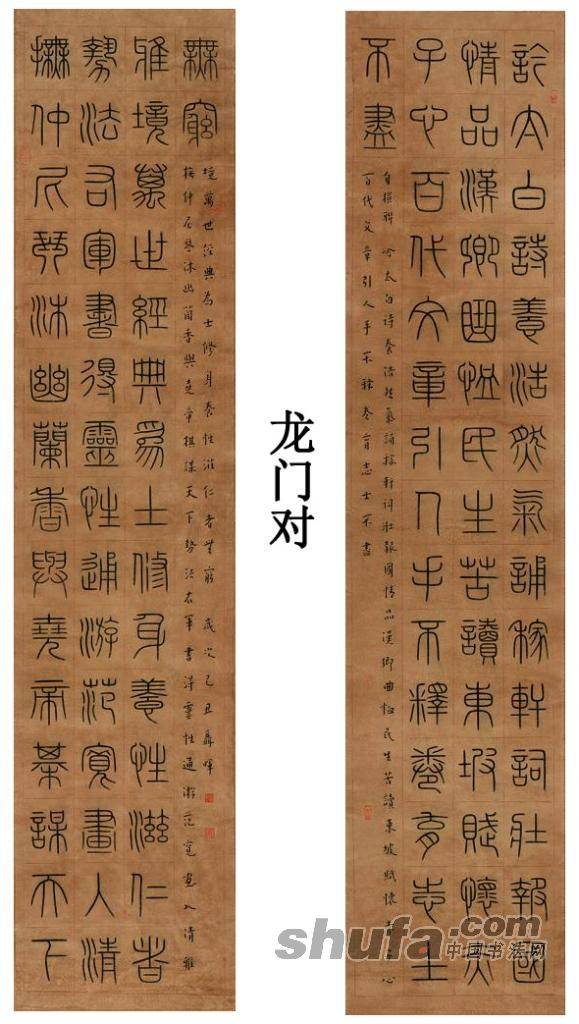 訡太白詩養浩然氣誦稼軒詞壯報國
情品漢卿曲恤民生苦讀東坡賦懷天
子心百代文章引人手不釋卷育志士
不盡
自撰聯 吟太白诗養浩然氣誦稼軒詞壯報國情品漢卿曲恤民生苦讀東坡賦懷天子心
百代文章引人手不釋卷育志士不盡
龙门对
撫仲尼琴沐幽蘭香與堯帝棊謀天下
勢法右軍書得靈性通游范寬畫入清
雅境萬世經典為士修身養性滋仁者
無窮
撫仲尼琴沐幽蘭香與堯帝棋謀天下勢法右軍書得靈性通游范寬畫入清雅
境萬世經典為士修身養性滋仁者無窮 歲次己丑聶暉
shufa.com
中国书法网